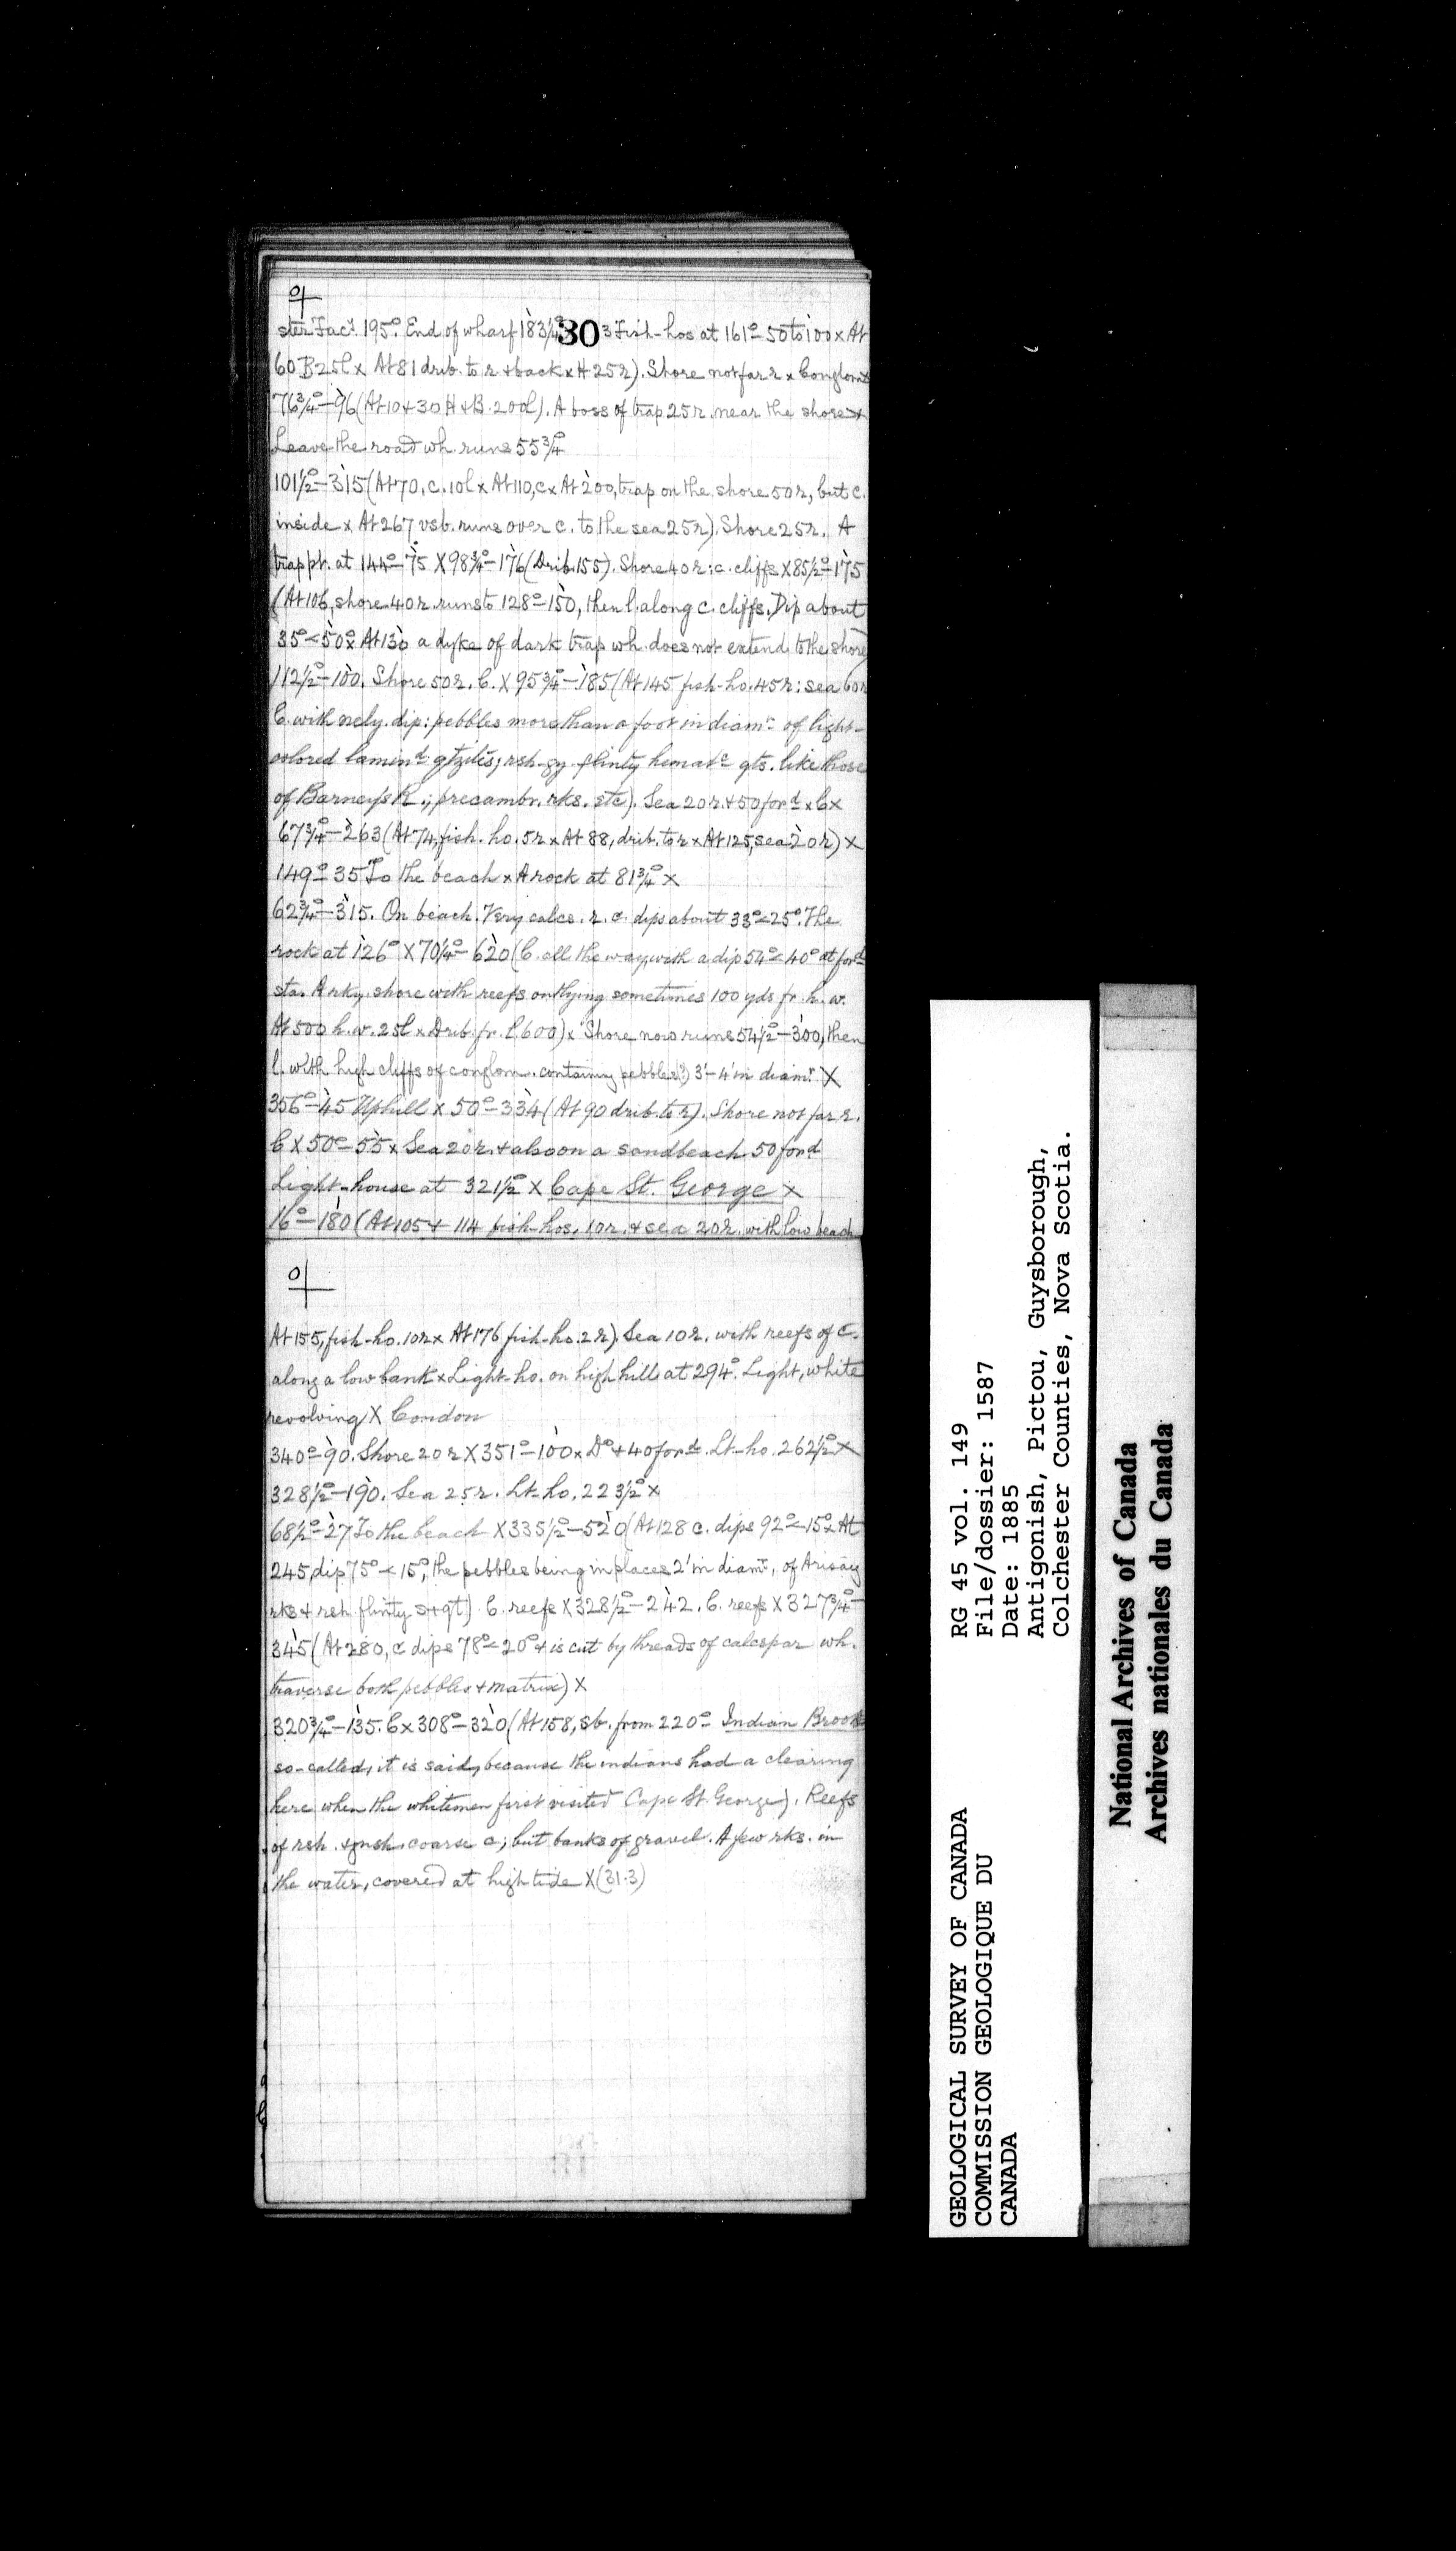 ster Facy. 195°. End of wharf 183¼° 30 3 Fish-hos at 161°–50 to 100 x At
60 B 25l x At 81 drib. to r + back x H 25r). Shore not far r x Conglom x
76¾°–96 (At 10 + 30 H + B. 20l). A boss of trap 25r near the shore x
Leave the road wh. runs 55¾°
101½°–315 (At 70, c. 10l x At 110, c x At 200, trap on the shore 50r, but c.
inside x At 267 vsb. runs over c. to the sea 25r). Shore 25r. A
trap pt. at 144°–75 X 98¾°–176 (Drib. 155). Shore 40r: c. cliffs X 85½°–175
(At 106, shore 40r. runs to 128°–150, then l. along c. cliffs. Dip about
35°<50° x At 130 a dyke of dark trap wh. does not extend to the shore)
112½°–100. Shore 50r. C. X 95¾°–185 (At 145 fish-ho. 45r: sea 60r
C. with nely. dip: pebbles more than a foot in diamr. of light-
colored lamind. qtzites; rsh-gy flinty hematc. qts. like those
of Barneys R.; precambr. rks. etc). Sea 20r. + 50 ford. x C x
67¾°–263 (At 74, fish. ho. 5r x At 88, drib. to r x At 125, sea 20r) x
149°–35 To the beach x A rock at 81¾° x
62¾°–315. On beach. Very calcs. r. c. dips about 33°<25°. The
rock at 126° X 70¼°–620 (C. all the way, with a dip 54°<40° at ford.
sta. A rky. shore with reefs outlying sometimes 100 yds fr. h. w.
At 500 h.w. 25l x Drib. fr. l. 600) x Shore now runs 54½°–300, then
l. with high cliffs of conglom. containing pebbles (?) 3'–4' in diamr. X
356°–45 Uphill x 50°–334 (At 90 drib. to r). Shore not far r.
C X 50°–55 x Sea 20r. + also on a sandbeach 50 ford.
Light-house at 321½° X Cape St. George X
16°–180 (At 105 + 114 fish-hos. 10r. + sea 20r. with low beach
At 155, fish-ho. 10r x At 176 fish-ho. 2r). Sea 10r. with reefs of c.
along a low bank x Light-ho. on high hill at 294°. Light, white
revolving X Condon
340°–90. Shore 20r X 351°–100 x Do + 40 ford. Lt-ho. 262½° X
328½°–190. Sea 25r. Lt-ho. 223½° x
68½°–27 To the beach X 335½°–520 (At 128 c. dips 92°<15° x At
245, dip 75°<15°, the pebbles being in places 2' in diamr., of Arisaig
rks + rsh flinty s + qt). C. reefs X 328½°–242. C. reefs X 327¾°–
345 (At 280, c dips 78°<20° + is cut by threads of calcspar wh.
traverse both pebbles + matrix) X
320¾°–135. C x 308°–320 (At 158, sb. from 220°– Indian Brook
so-called, it is said, because the indians had a clearing
here when the whitemen first visited Cape St. George). Reefs
of rsh. + gnsh. coarse c; but banks of gravel. A few rks. in
the water, covered at high tide X (31.3)
GEOLOGICAL SURVEY OF CANADA
COMMISSION GEOLOGIQUE DU
CANADA
RG 45 vol. 149
File/dossier: 1587
Date: 1885
Antigonish, Pictou, Guysborough,
Colchester Counties, Nova Scotia.
National Archives of Canada
Archives nationales du Canada